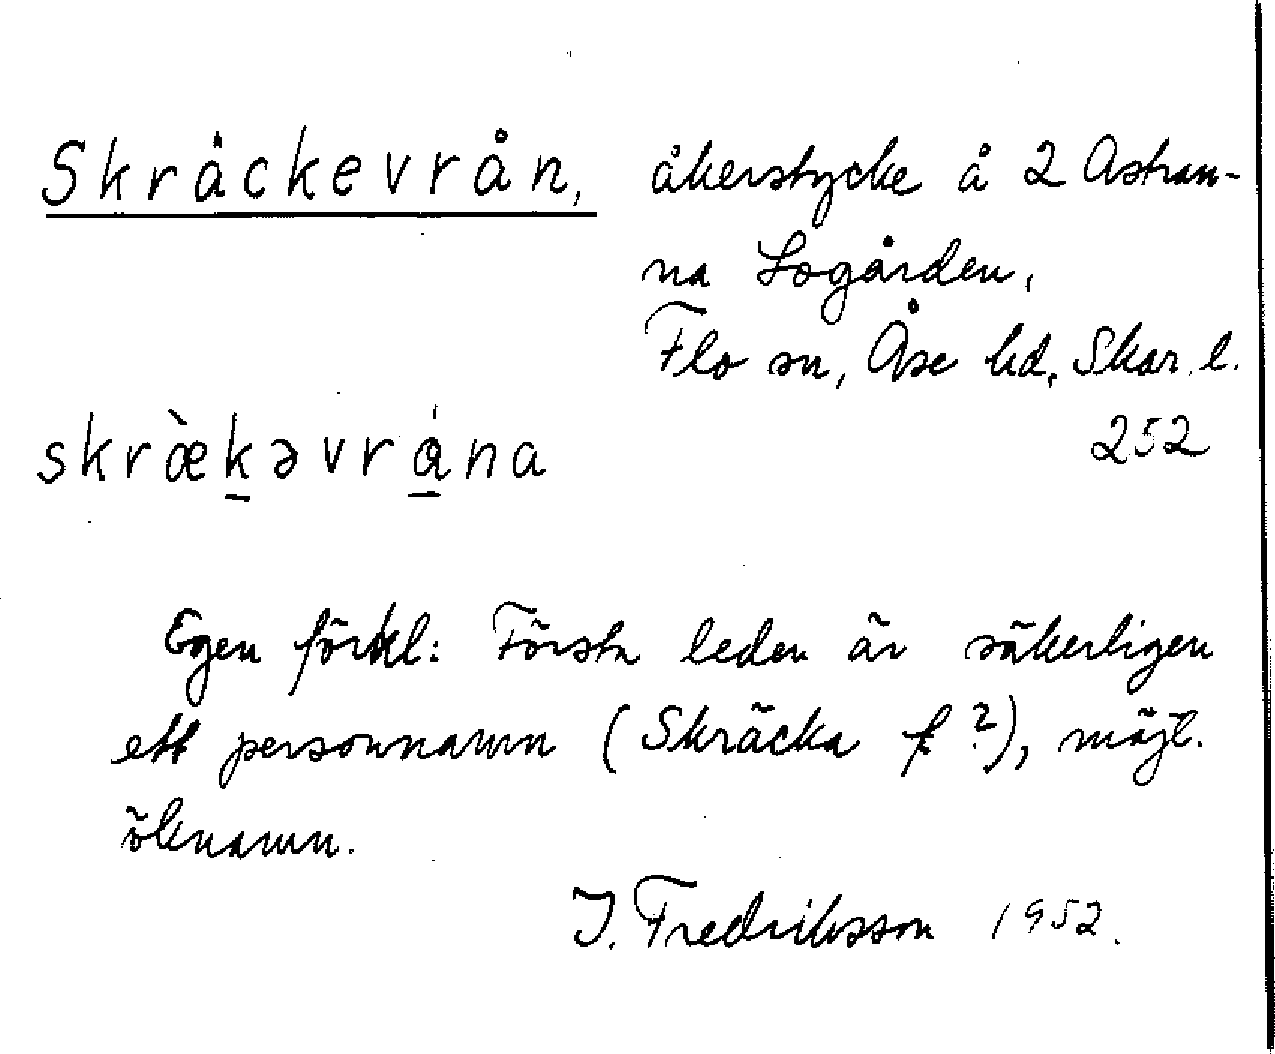 Skråckevrån, åkerstycke å 2 Astran-
na Logården,
Flo sn, Åse hd, Skar. l.
252
skræ̀kəvrána
Egen förkl: Första leden är säkerligen
ett personnamn (Skräcka f ?), möjl.
öknamn.
J. Fredriksson 1952.